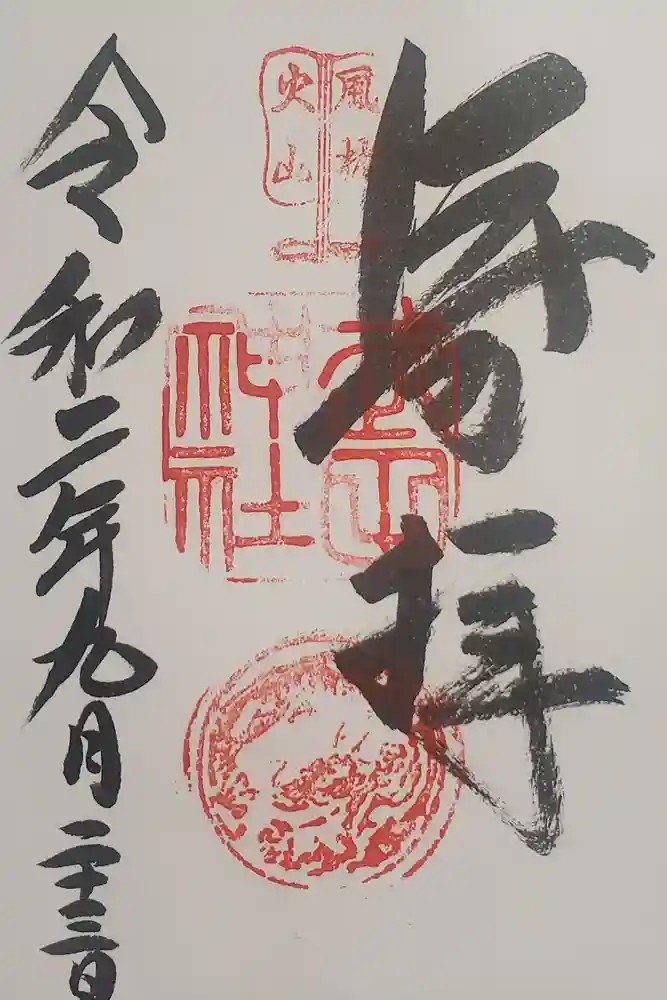 奉拝
風林
火山
令和二年九月二十三日